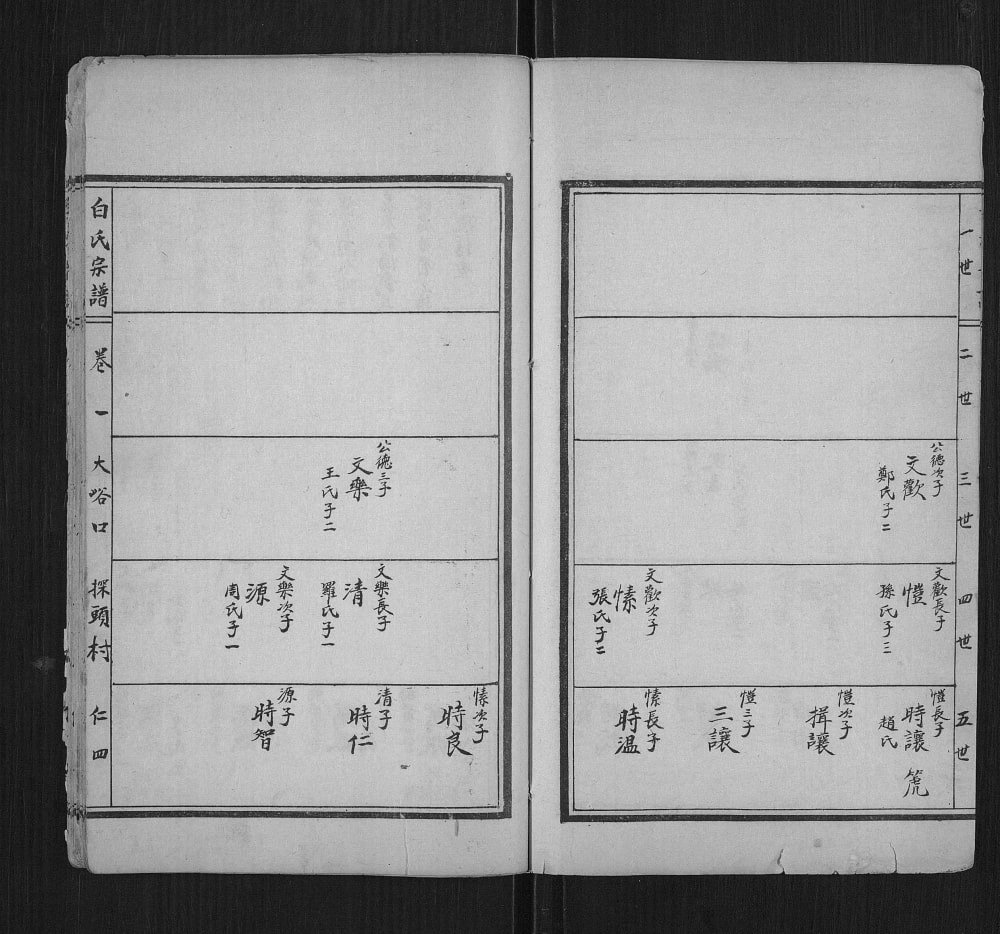 一世
二世
三世
四世
五世
公德次子
文歡
鄭氏子二
文歡長子
愷
孫氏子三
文歡次子
愫
張氏子二
愷長子
時讓
趙氏
愷次子
揖讓
愷三子
三讓
愫長子
時温
公德三子
文樂
王氏子二
文樂長子
清
羅氏子一
文樂次子
源
周氏子一
愫次子
時良
清子
時仁
源子
時智
白氏宗譜 卷一 大峪口 探頭村 仁四